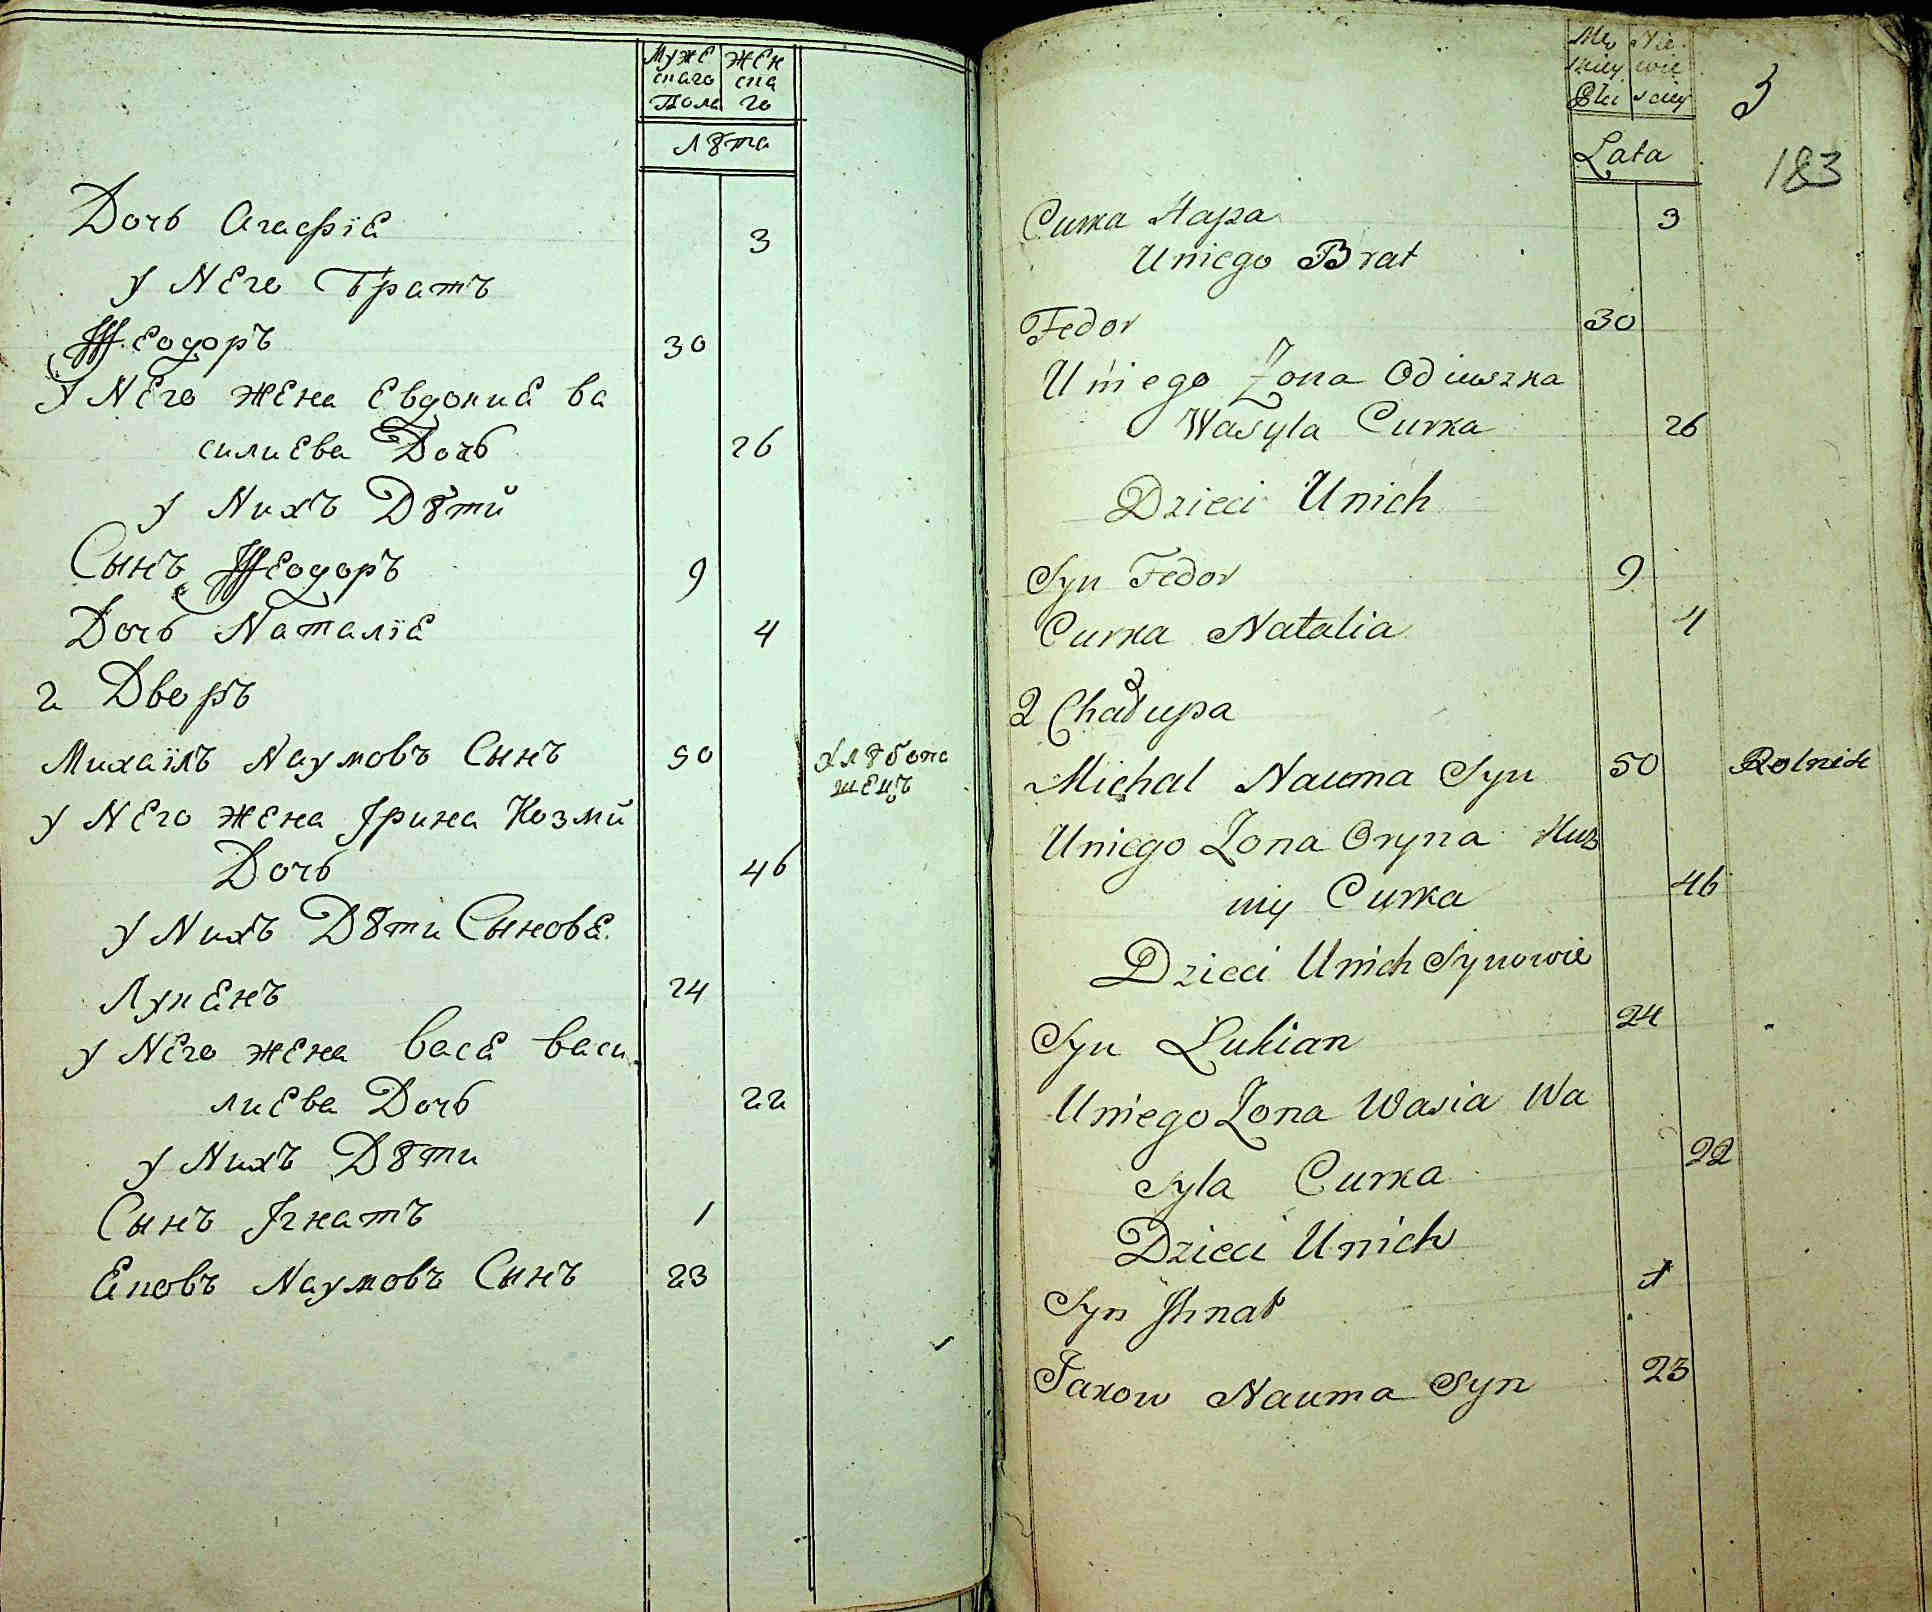 Муже жен
скаго ска
Пола го
лѣта
Дочь Агафїя 3
у Него братъ
Феодоръ 30
у Него жена Евдокия ва
силиева Дочь 26
у Нихъ Дѣтй
Сынъ Феодоръ 9
Дочь Наталїя 4
2 Дворъ
Михаїлъ Наумовъ Сынъ 50 хлѣбопа
шецъ
у Него жена Ірина Козмй
Дочь 46
у Нихъ Дѣти Сыновя
Лукянъ 24
у Него жена Вася васи
лиева Дочь 22
у Нихъ Дѣти
Сынъ Ігнатъ 1
Яковъ Наумовъ Сынъ 23
Mę Nie
skiey wie
Płci sciey
3
Lata
183
Curka Hapa 3
Uniego Brat
Fedor 30
Uniego Zona Odiuszka
Wasyla Curka 26
Dzieci Unich
Syn Fedor 9
Curka Natalia 4
2 Chałupa
Michal Nauma Syn 50 Rolnik
Uniego Zona Oryna Kuz
my Curka 46
Dzieci Unich Synowie
Syn Lukian 24
Uniego Zona Wasia Wa
syla Curka 22
Dzieci Unich
Syn Ihnat 1
Jakow Nauma Syn 23